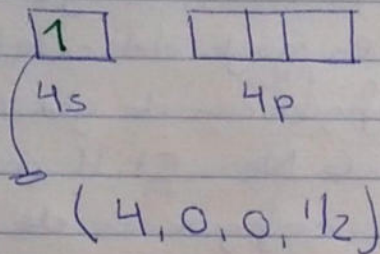 1
4s 4p
(4, 0, 0, 1/2)